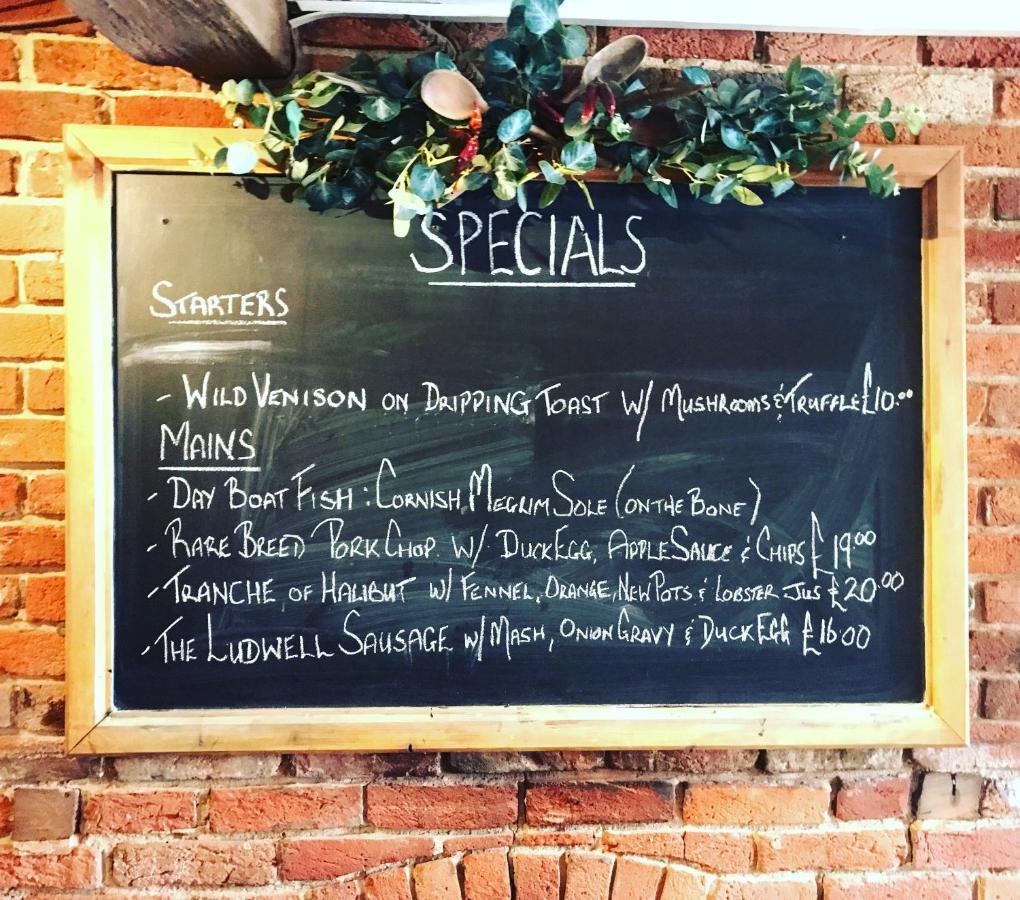 SPECIALS
STARTERS
- WILD VENISON ON DRIPPING TOAST W/ MUSHROOMS & TRUFFLE £10.00
MAINS
- DAY BOAT FISH : CORNISH MEGRIM SOLE (ON THE BONE)
- RARE BREED PORK CHOP W/ DUCK EGG, APPLE SAUCE & CHIPS £19.00
- TRANCHE OF HALIBUT W/ FENNEL, ORANGE, NEW POTS & LOBSTER JUS £20.00
- THE LUDWELL SAUSAGE W/ MASH, ONION GRAVY & DUCK EGG £16.00